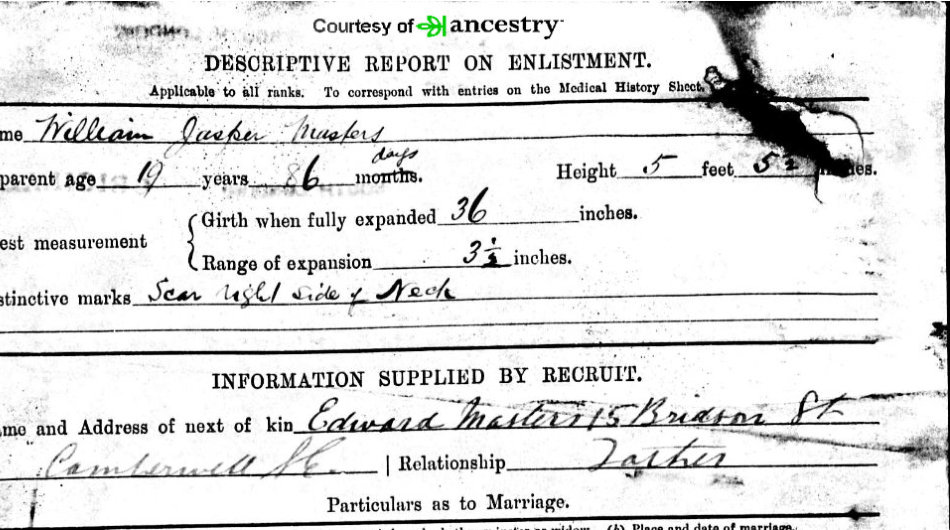 Courtesy of ancestry
DESCRIPTIVE REPORT ON ENLISTMENT.
Applicable to all ranks. To correspond with entries on the Medical History Sheet.
me William Jasper Masters
days
parent age 19 years 86 months. Height 5 feet 5½ inches.
Girth when fully expanded 36 inches.
est measurement
Range of expansion 3½ inches.
stinctive marks Scar right side of Neck
INFORMATION SUPPLIED BY RECRUIT.
me and Address of next of kin Edward Masters 15 Bridson St
Camberwell SE. | Relationship Father
Particulars as to Marriage.
(b) Place and date of marriage.